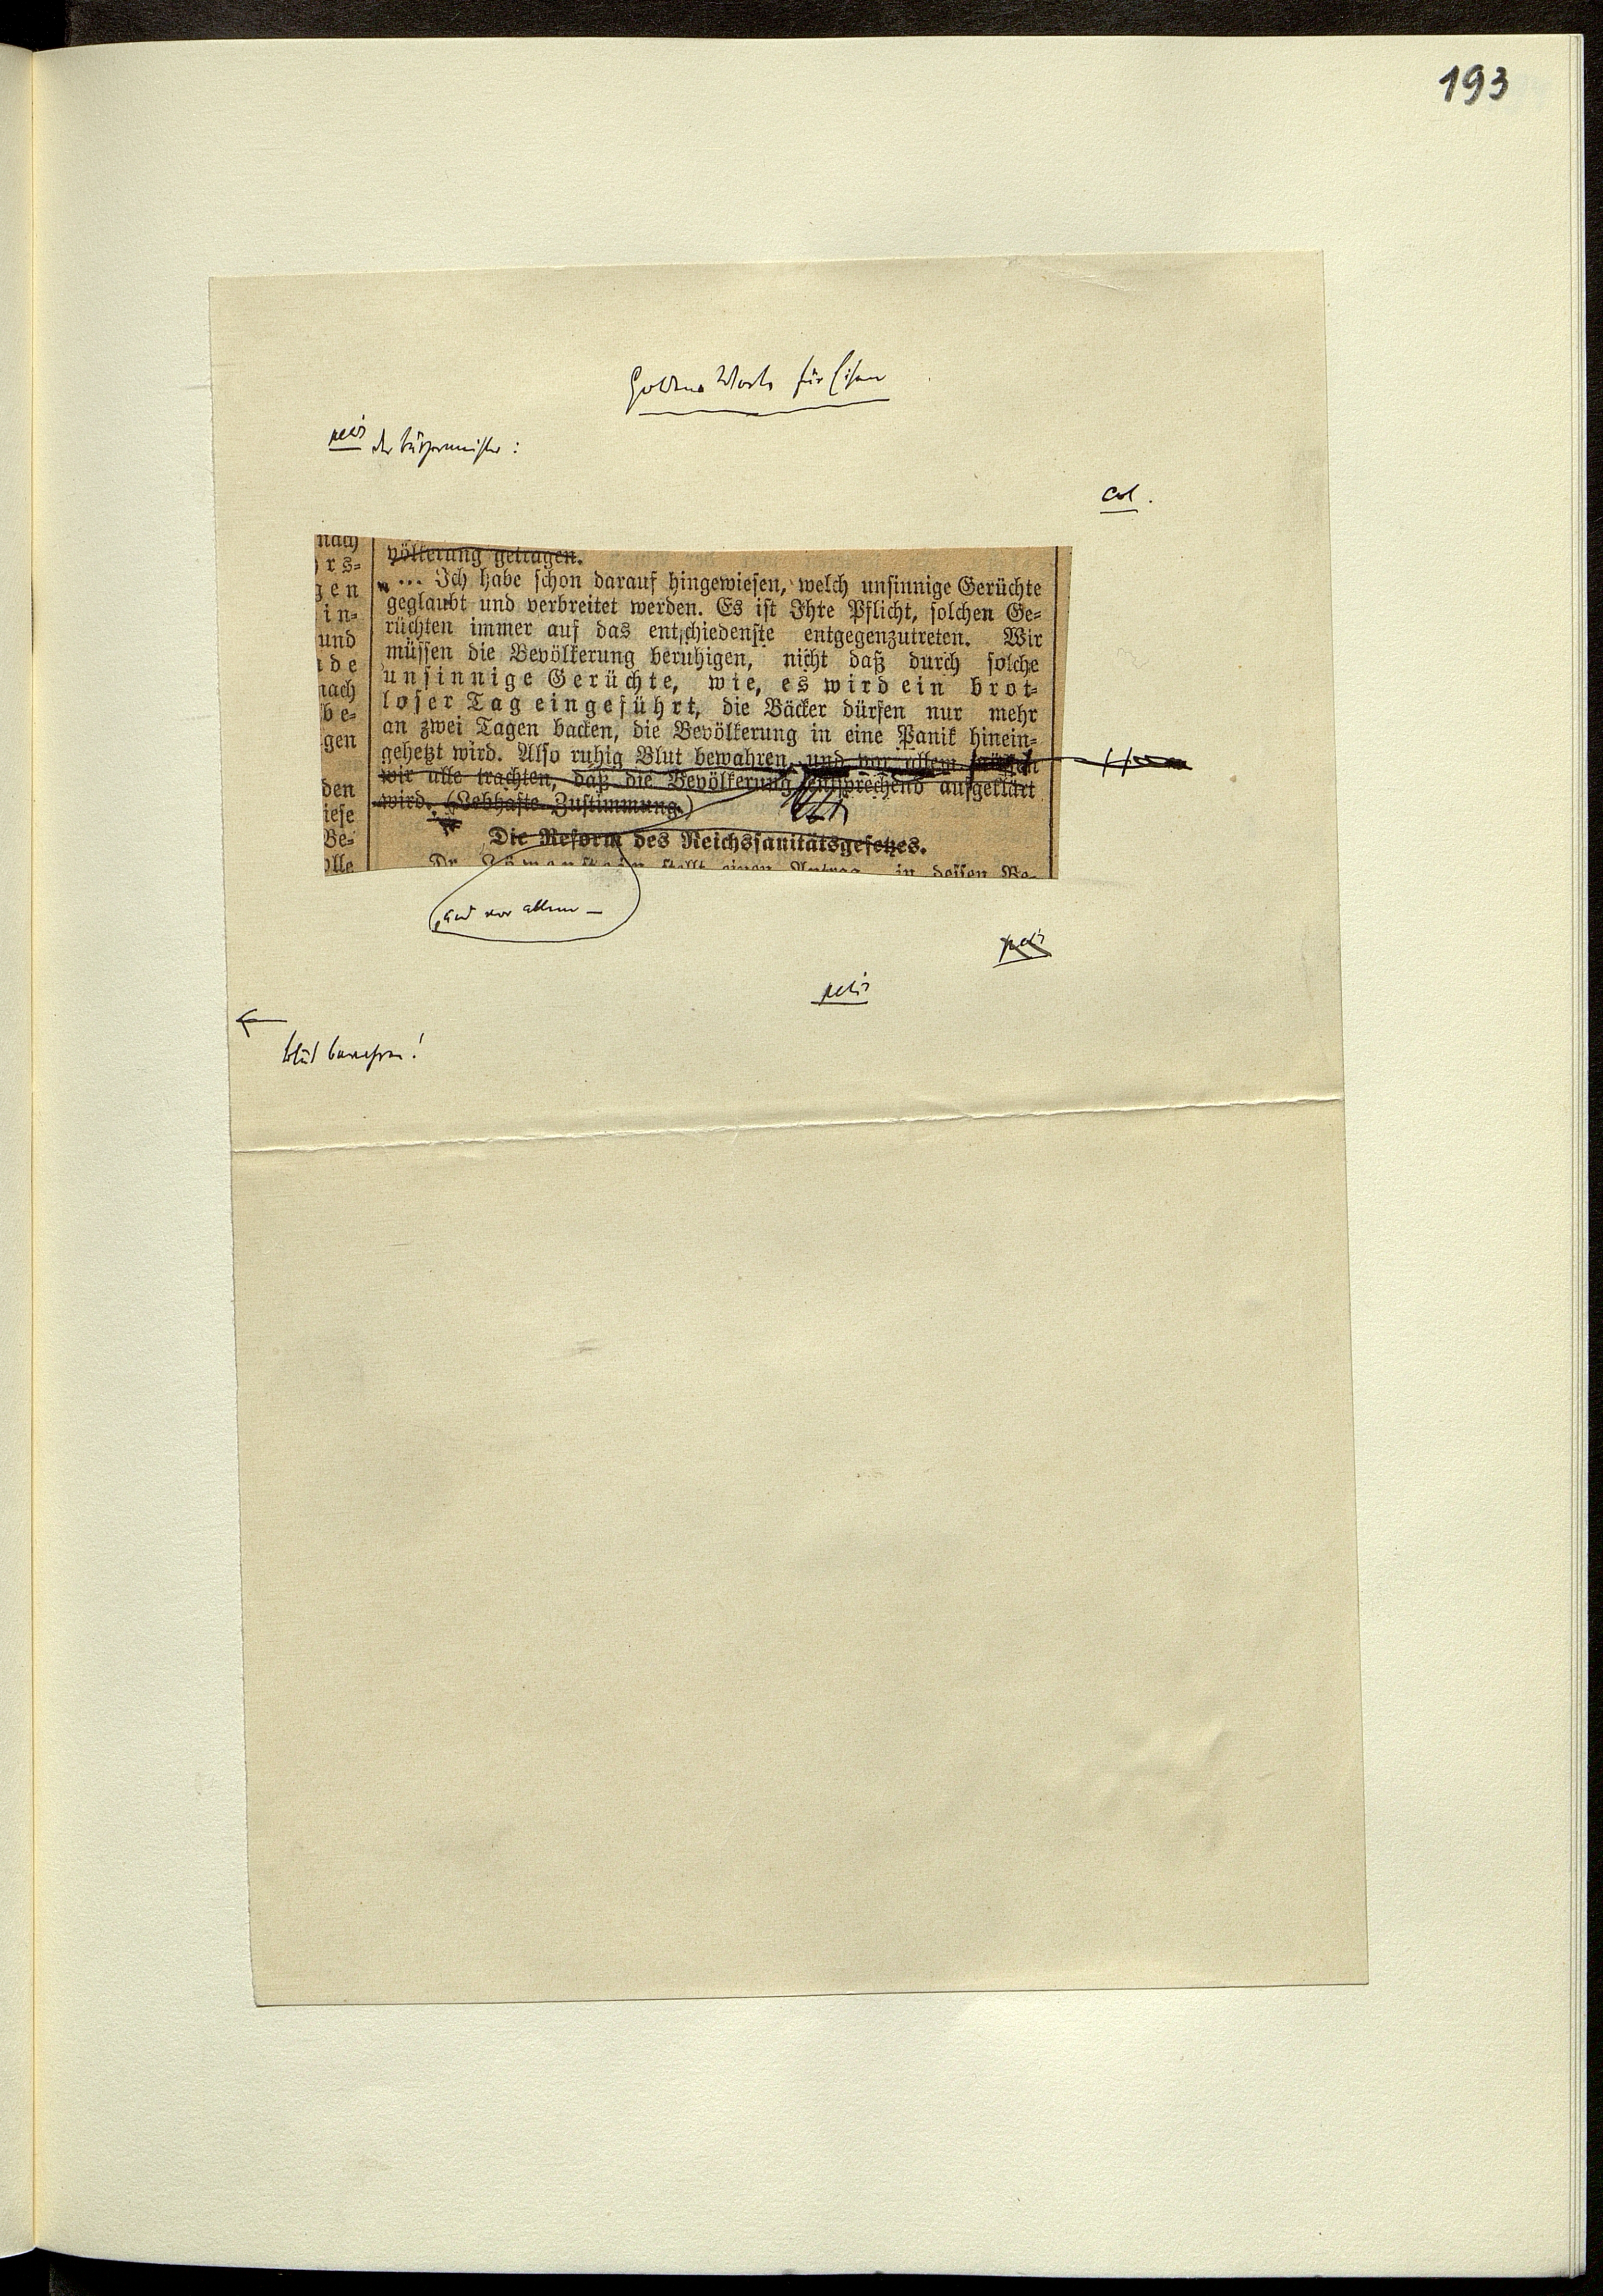 193
Goldene Worte für Eisen
petit der Bürgermeister:
Col.
nach
rs-
gen
in-
und
de
nach
be-
gen
den
iese
Be-
olle
völkerung getragen.
„... Ich habe schon darauf hingewiesen, welch unsinnige Gerüchte
geglaubt und verbreitet werden. Es ist Ihre Pflicht, solchen Ge-
rüchten immer auf das entschiedenste entgegenzutreten. Wir
müssen die Bevölkerung beruhigen, nicht daß durch solche
unsinnige Gerüchte, wie, es wird ein brot-
loser Tag eingeführt, die Bäcker dürfen nur mehr
an zwei Tagen backen, die Bevölkerung in eine Panik hinein-
gehetzt wird. Also ruhig Blut bewahren, und vor allem müssen
wir alle trachten, daß die Bevölkerung entsprechend aufgeklärt
wird. (Lebhafte Zustimmung.)
Die Reform des Reichssanitätsgesetzes.
Dr. Löwenstein stellt einen Antrag, in dessen Be-
und vor allem —
petit
petit
Blut bewahren!